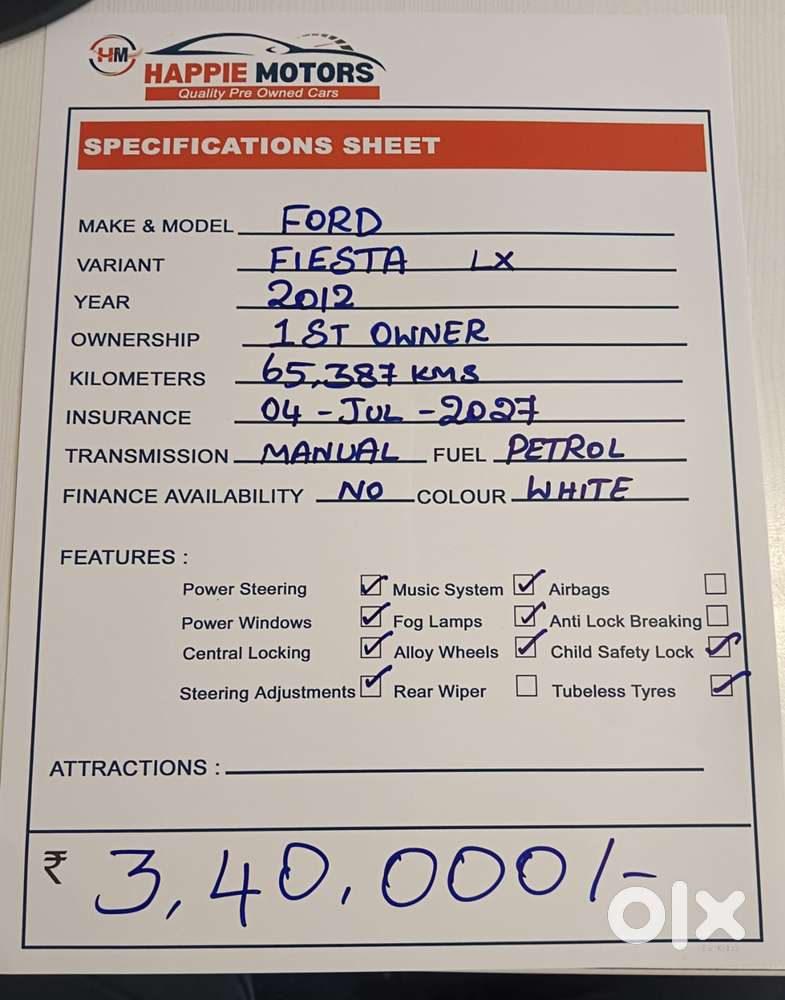 HM
HAPPIE MOTORS
Quality Pre Owned Cars
SPECIFICATIONS SHEET
MAKE & MODEL FORD
VARIANT FIESTA LX
YEAR 2012
OWNERSHIP 1ST OWNER
KILOMETERS 65,387 KMS
INSURANCE 04 - JUL - 2027
TRANSMISSION MANUAL FUEL PETROL
FINANCE AVAILABILITY NO COLOUR WHITE
FEATURES :
Power Steering Music System Airbags
Power Windows Fog Lamps Anti Lock Breaking
Central Locking Alloy Wheels Child Safety Lock
Steering Adjustments Rear Wiper Tubeless Tyres
ATTRACTIONS :
₹ 3,40,000/-
olx